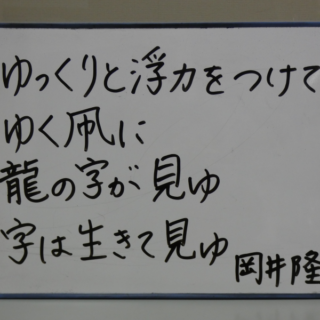 ゆっくりと浮力をつけて
ゆく凧に
龍の字が見ゆ
字は生きて見ゆ
岡井隆